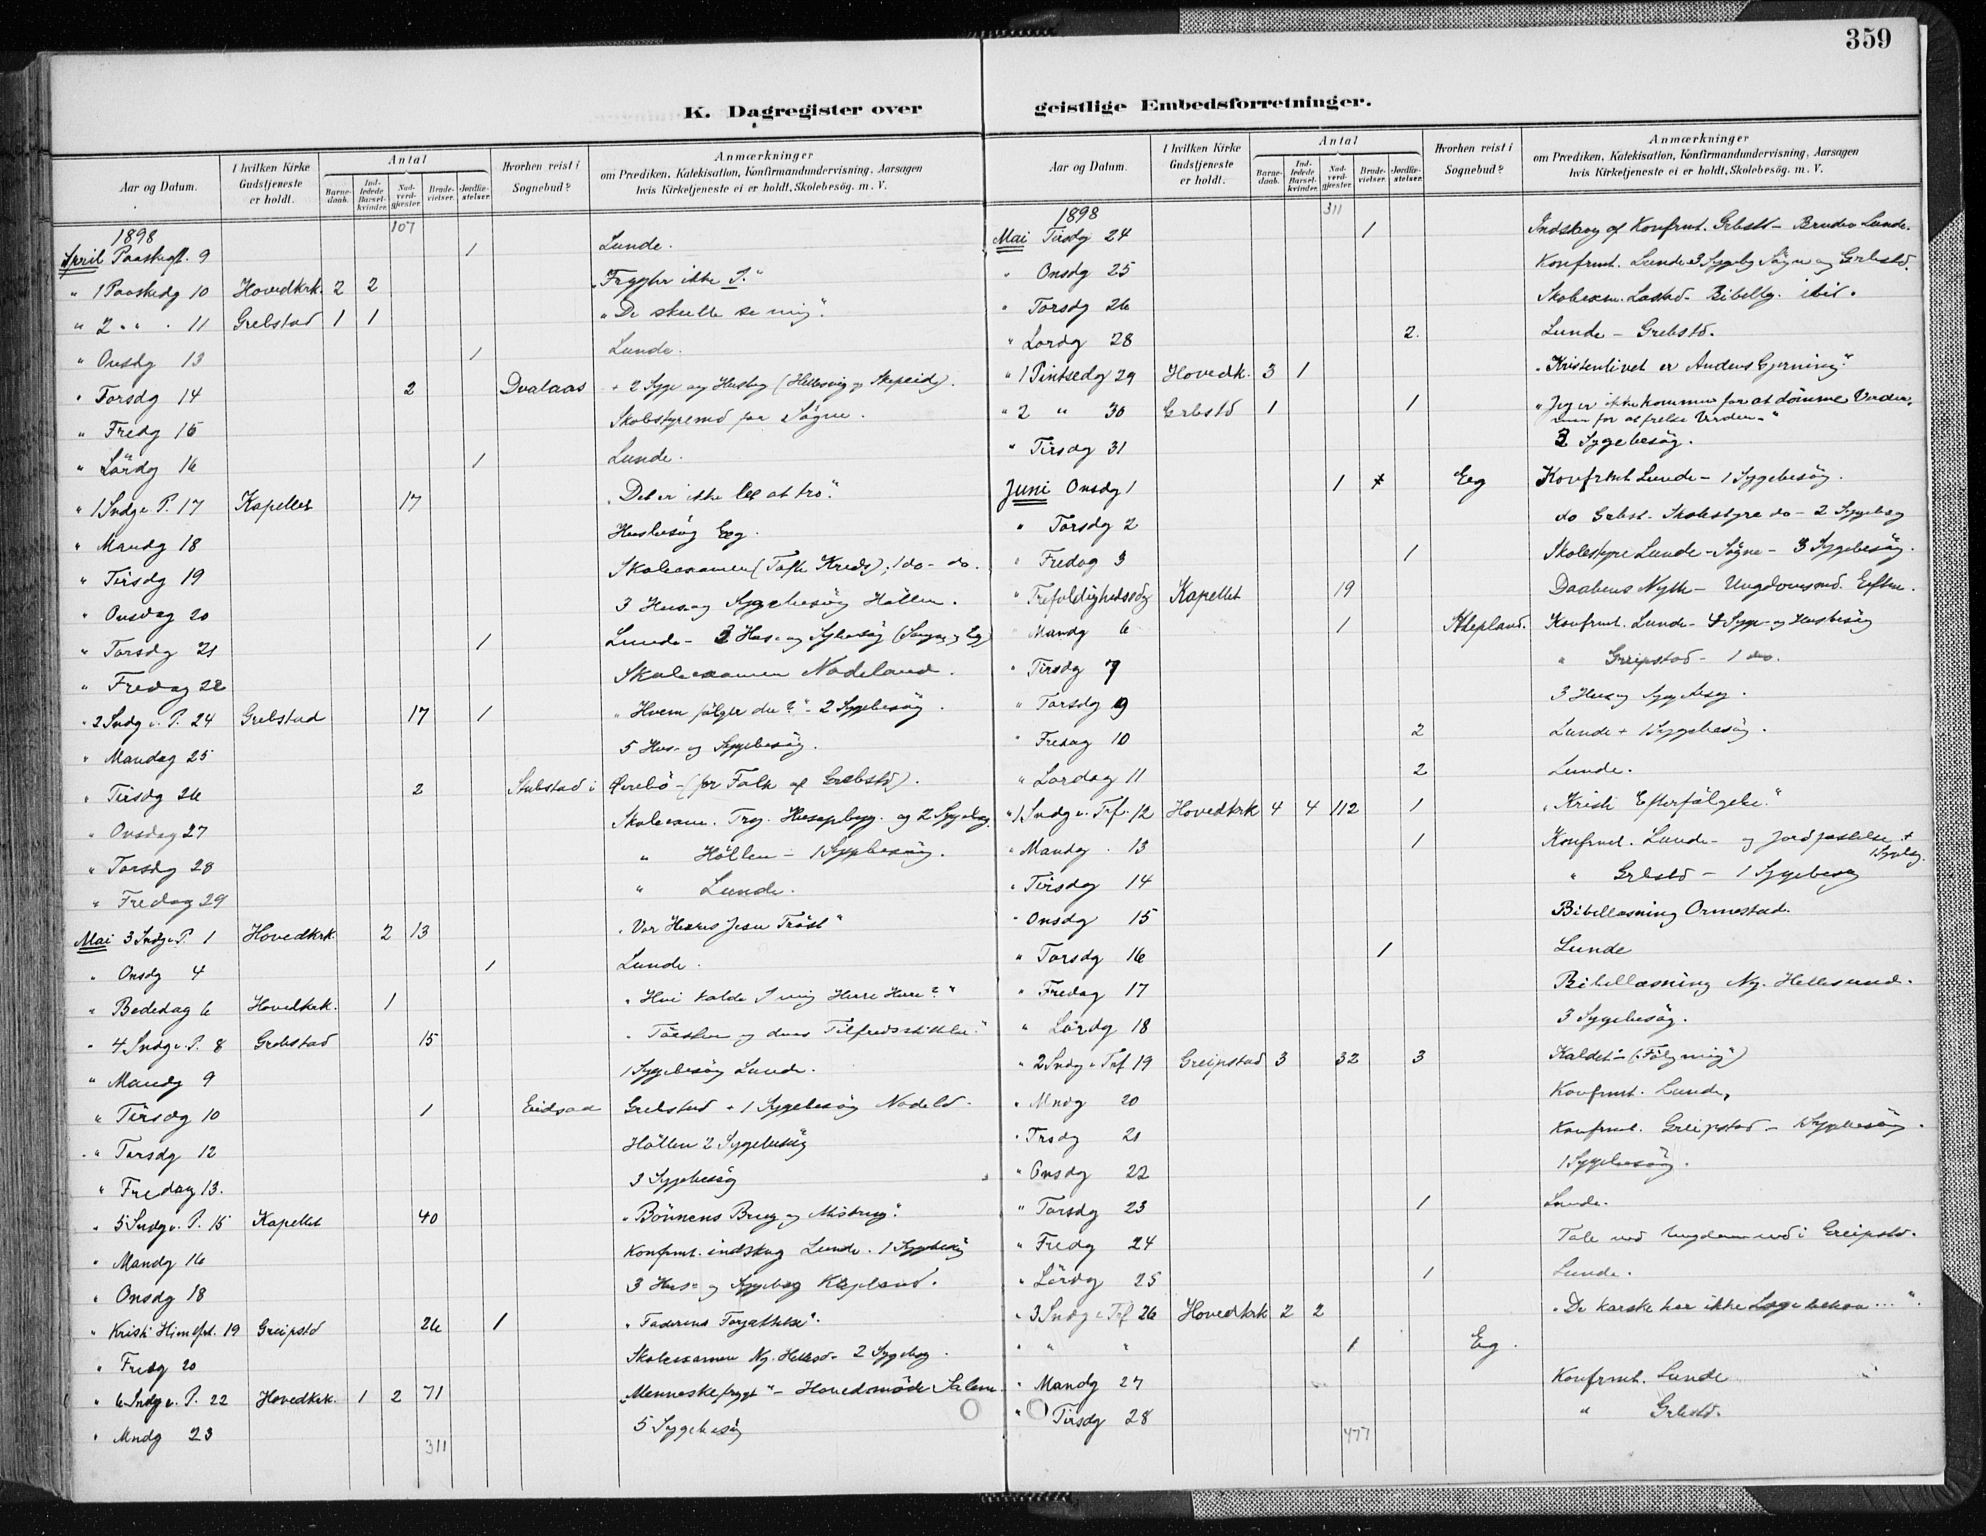 359
K. Dagregister over
geistlige Embedsforretninger.
Aar og Datum.
I hvilken Kirke Gudstjeneste er holdt.
Antal
Barnedaab.
Indledede Barselkvinder.
Nadverdgjæster.
Brudevielser.
Jordfæstelser.
Hvorhen reist i Sognebud?
Anmærkninger
om Prædiken, Katekisation, Konfirmandundervisning, Aarsagen
hvis Kirketjeneste ei er holdt, Skolebesög, m. V.
1898 107
April Paaskeaft. 9 1 Lunde.
" 1 Paaskedg 10 Hovedkrk. 2 2 "Frygter ikke I."
" 2 " " 11 Grebstad 1 1 "De skulle se mig".
" Onsdg 13 1 Lunde.
" Torsdg 14 2 Dvalaas + 2 Syge og Husbsg
" Fredg 15 Skolestyremd for Søgne.
" Lørdg 16 1 Lunde.
" 1 Sndg e. P. 17 Kapellet 17 "Det er ikke let at tro".
" Mandg 18 Husbesøg Eeg.
" Tirsdg 19 Skoleexamen (Tofte Kreds), 1 do - do.
" Onsdag 20 3 Hus og Sygebesøg Höllen.
" Torsdg 21 1 Lunde - 3 Hus- og Sygebesøg
" Fredag 22 Skoleexamen Nodeland.
" 2 Sndg e. P. 24 Grebstad 17 1 "Hvem følger du?" - 2 Sygebesøg.
" Mandag 25 5 Hus- og Sygebesøg.
" Tirsdg 26 2 Stubstad i Øvrebø - (for Folk af Grebstd).
" Onsdag 27 Skoleexm. Trg. og 2 Sygebsg.
" Torsdg 28 " Höllen - 1 Sygebesøg.
" Fredag 29 " Lunde.
Mai 3 Sndg e. P. 1 Hovedkrk 2 13 "Vor Herres Jesu Trøst"
" Onsdg 4 1 Lunde.
" Bededag 6 Hovedkrk. 1 "Hvi kalde I mig Herre Herre?"
" 4 Sndg e. P. 8 Grebstad 15 "Tørsten og dens Tilfredsstillelse."
" Mandg 9 1 Sygebesøg Lunde.
" Tirsdg 10 1 Eidsaa Grebstad + 1 Sygebesøg Nodeld.
" Torsdg 12 Höllen 2 Sygebesøg
" Fredag 13. 3 Sygebesøg
" 5 Sndg e. P. 15 Kapellet 40 "Bönnens Brug og Misbrug".
" Mandg 16 Konfrmt. indskrg Lunde. 1 Sygebesøg
" Onsdg 18 3 Hus- og Sygebsg Klepland.
" Kristi Himlfrt. 19 Greipstd 26 1 "Faderens Forjættelse".
" Fredg 20 Skoleexamen Ny. Hellesd - 2 Sygebsg.
" 6 Sndg e. P. 22 Hovedkrk. 1 2 71 "Menneskefrygt" - Hovedmøde Salem
" Mndg 23 5 Sygebesøg
311
Aar og Datum.
I hvilken Kirke Gudstjeneste er holdt.
Antal
Barnedaab.
Indledede Barselkvinder.
Nadverdgjæster.
Brudevielser.
Jordfæstelser.
Hvorhen reist i Sognebud?
Anmærkninger
om Prædiken, Katekisation, Konfirmandundervisning, Aarsagen
hvis Kirketjeneste ei er holdt, Skolebesög, m. V.
1898 311
Mai Tirsdg 24 1 Indskrvg af Konfrmt. Grbstd - Brudev Lunde.
" Onsdg 25 Konfrmt. Lunde 3 Sygebsg Søgne og Grebstd.
" Torsdg 26 Skoleexm. Lastad - Bibellg. ibid.
" Lørdg 28 2. Lunde - Grebstd.
" 1 Pintsedg 29 Hovedk. 3 1 "Kristenlivet er Aandens Gjerning."
" 2 " 30 Grbstd 1 1 "Jeg er ikke kommen for at dømme Verden,
men for at frelse Verden."
" Tirsdg 31 2 Sygebesøg.
Juni Onsdg 1 1 Eeg Konfrmt Lunde - 1 Sygebesøg.
" Torsdg 2 do Grbst. Skolestyre do - 2 Sygebsg
" Fredag 3 1 Skolestyre Lunde - Søgne - 3 Sygebesøg.
" Trefoldighedsdg Kapellet 19 Daabens Nytte - Ungdomsmd. Eftm.
" Mandg 6 1 Klepland. Konfrmt. Lunde - 4 Syge- og Husbesøg
" Tirsdg 7 " Greipstad - 1 do.
" Torsdg 9 3 Hus og Sygebsg.
" Fredag 10 2 Lunde + 1 Sygebesøg.
" Lørdag 11 2 Lunde.
" 1 Sndg e. Trf. 12 Hovedkrk 4 4 112 1 "Kristi Efterfølgelse."
" Mandg 13 1 Konfrmt. Lunde - og Jordfæstelse +
1 Sygebsg.
" Tirsdg 14 " Grbstd - 1 Sygebesøg
" Onsdg 15 Bibellæsning Ormestad.
" Torsdg 16 1 Lunde
" Fredag 17 Bibellæsning Ny. Hellesund.
" Lørdg 18 3 Sygebesøg.
" 2 Sndg e Trf 19 Greipstad 3 32 3 Kaldet - ("Følg mig")
" Mndg 20 Konfrmt. Lunde,
" Trsdg 21 Konfrmt. Greipstad - 1 Sygebesøg.
" Onsdg 22 1 Sygebesøg.
" Torsdg 23 1 Lunde.
" Fredg 24 Tale ved Ungdomsmd i Greipstd.
" Lørdg 25 1 Lunde.
" 3 Sndg e Trf 26 Hovedkrk 2 2 "De karske har ikke Læge behov..."
" " " 1 Eg.
" Mandg 27 Konfrmt. Lunde
" Tirsdg 28 " Grbstd.
477